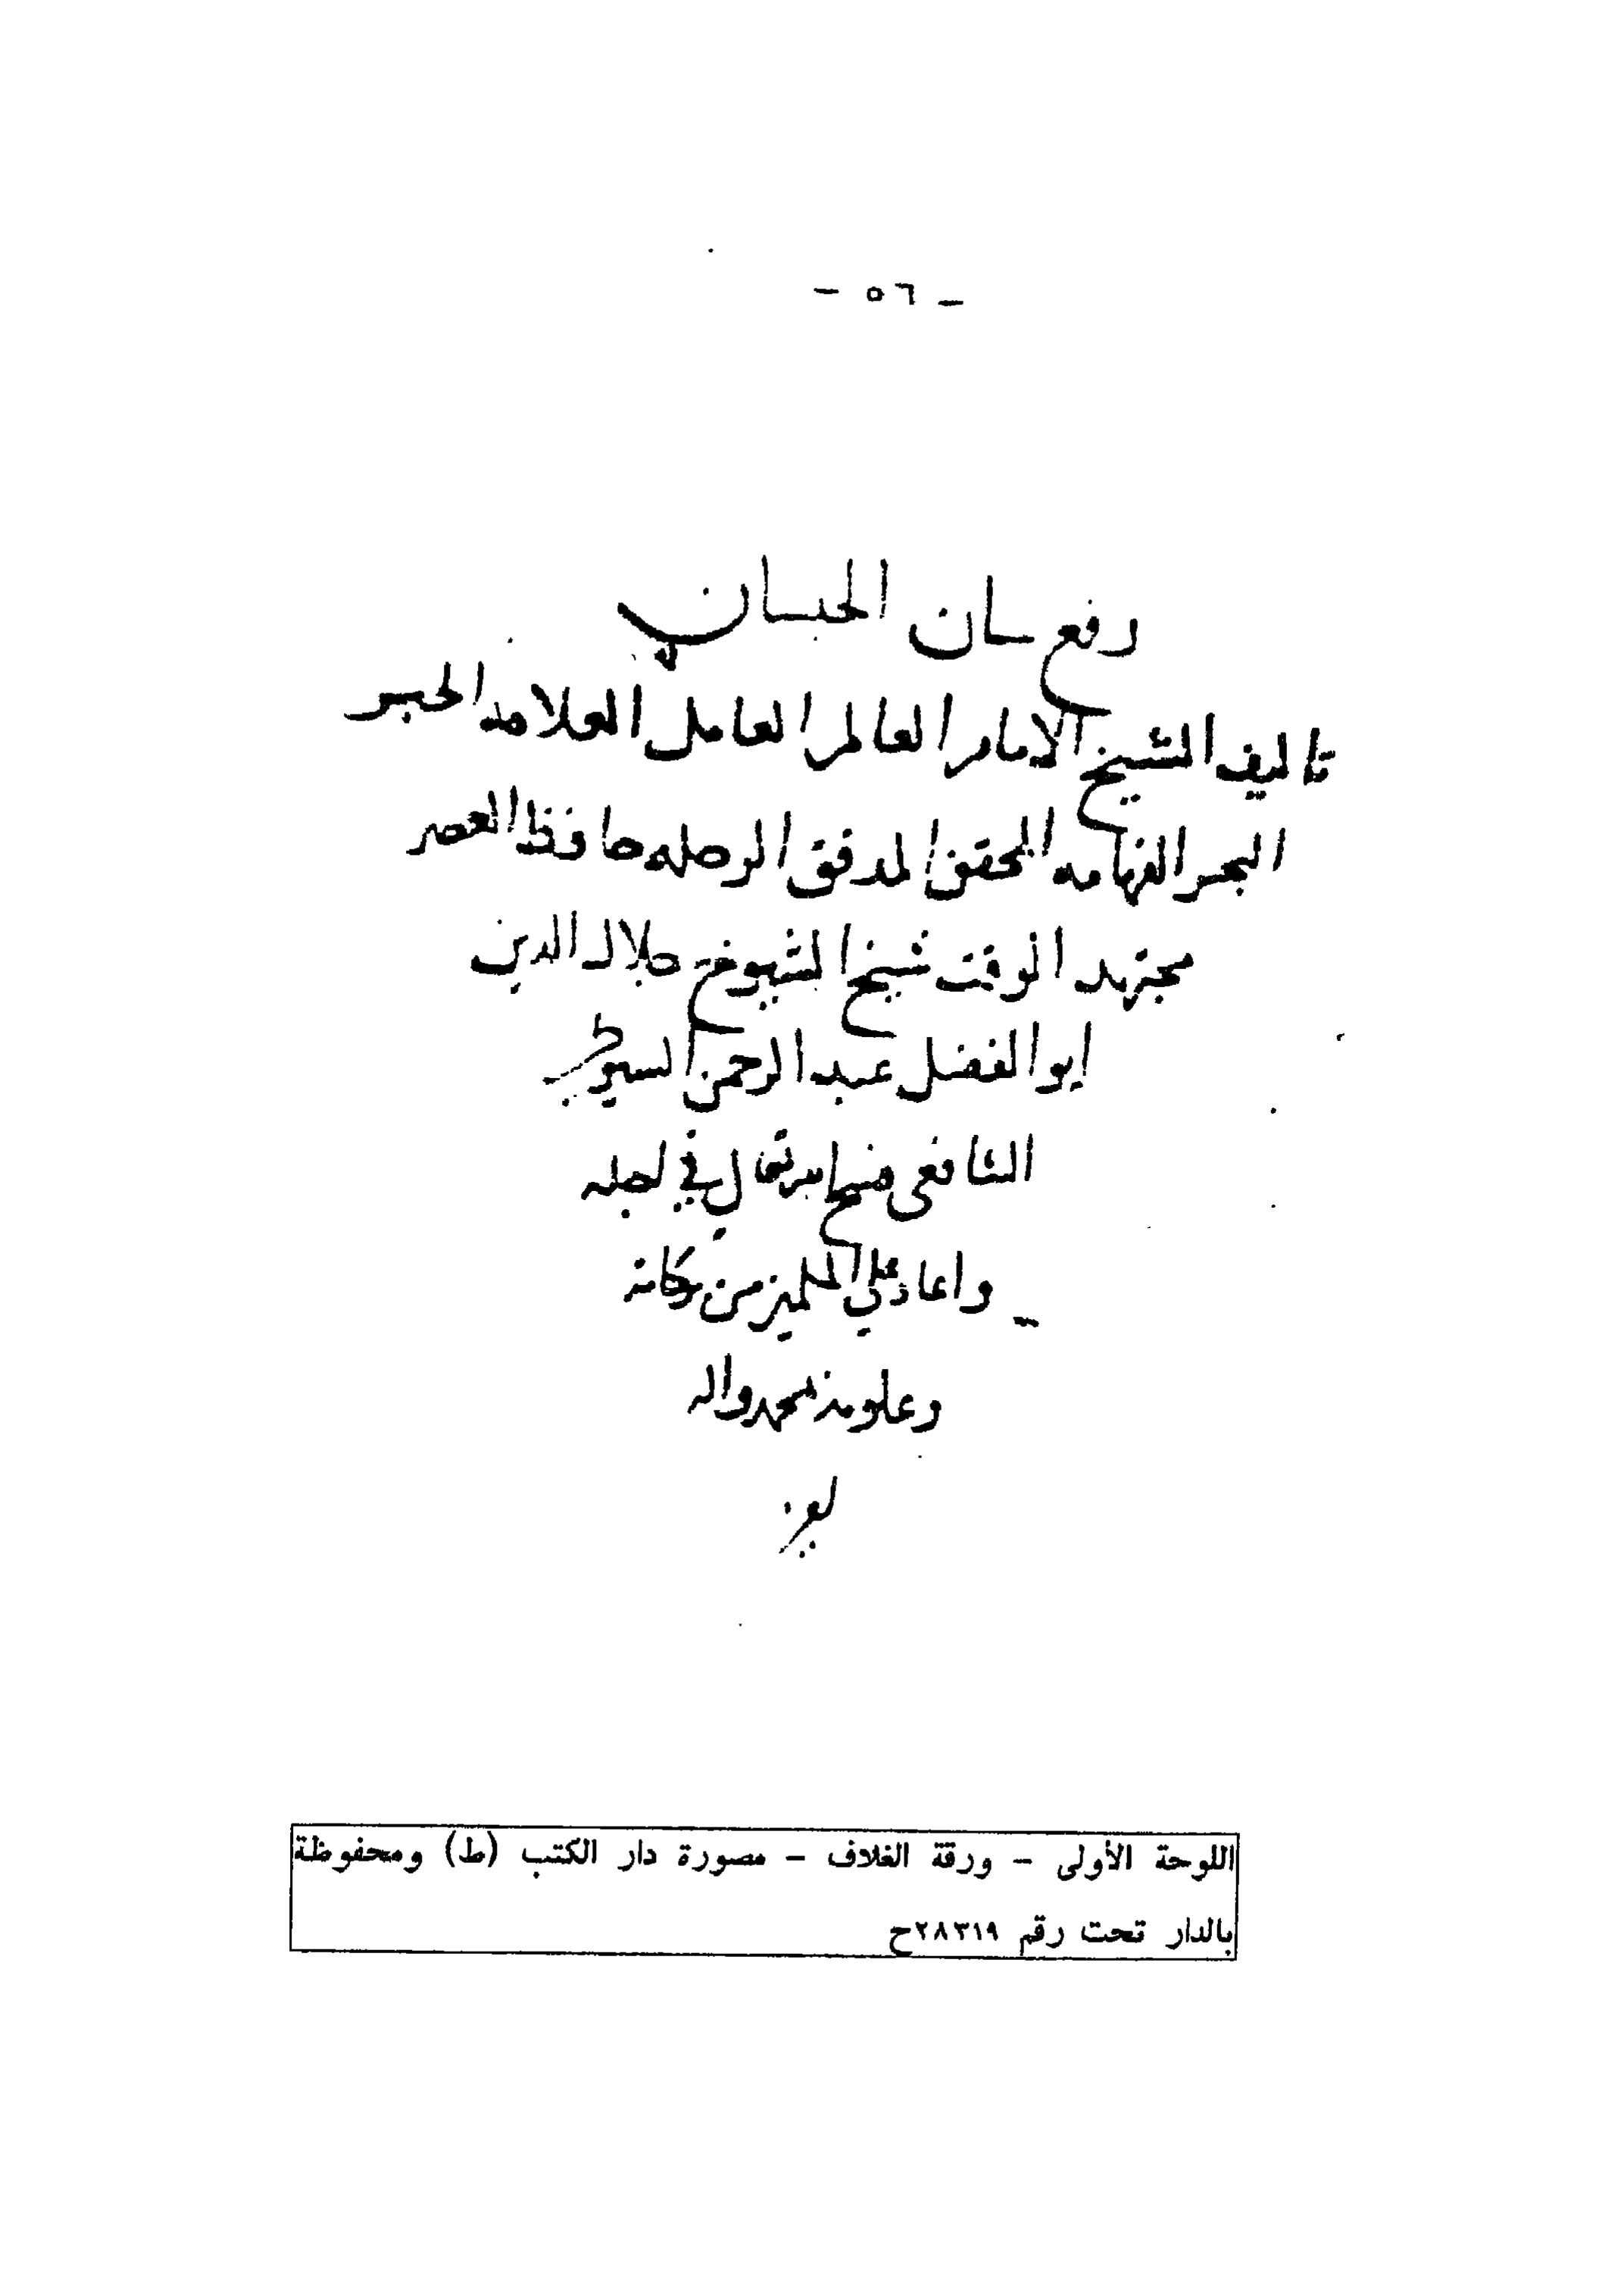 - ٥٦ -
رفع سان الحبسان
تاليف الشيخ الامام العالم العامل العلامه الحبر
البحر الفهامه المحقق المدقق الرحله حافظ العصر
مجتهد الوقت شيخ الشيوخ جلال الدين
ابو الفضل عبد الرحمن السيوطي
الشافعي في اجله
واعاد علي المسلمين من بركاته
وعلومه بمحمد واله
اللوحة الأولى - ورقة الغلاف - مصورة دار الكتب (ط) ومحفوظة
بالدار تحت رقم ٢٨٣١٩ح